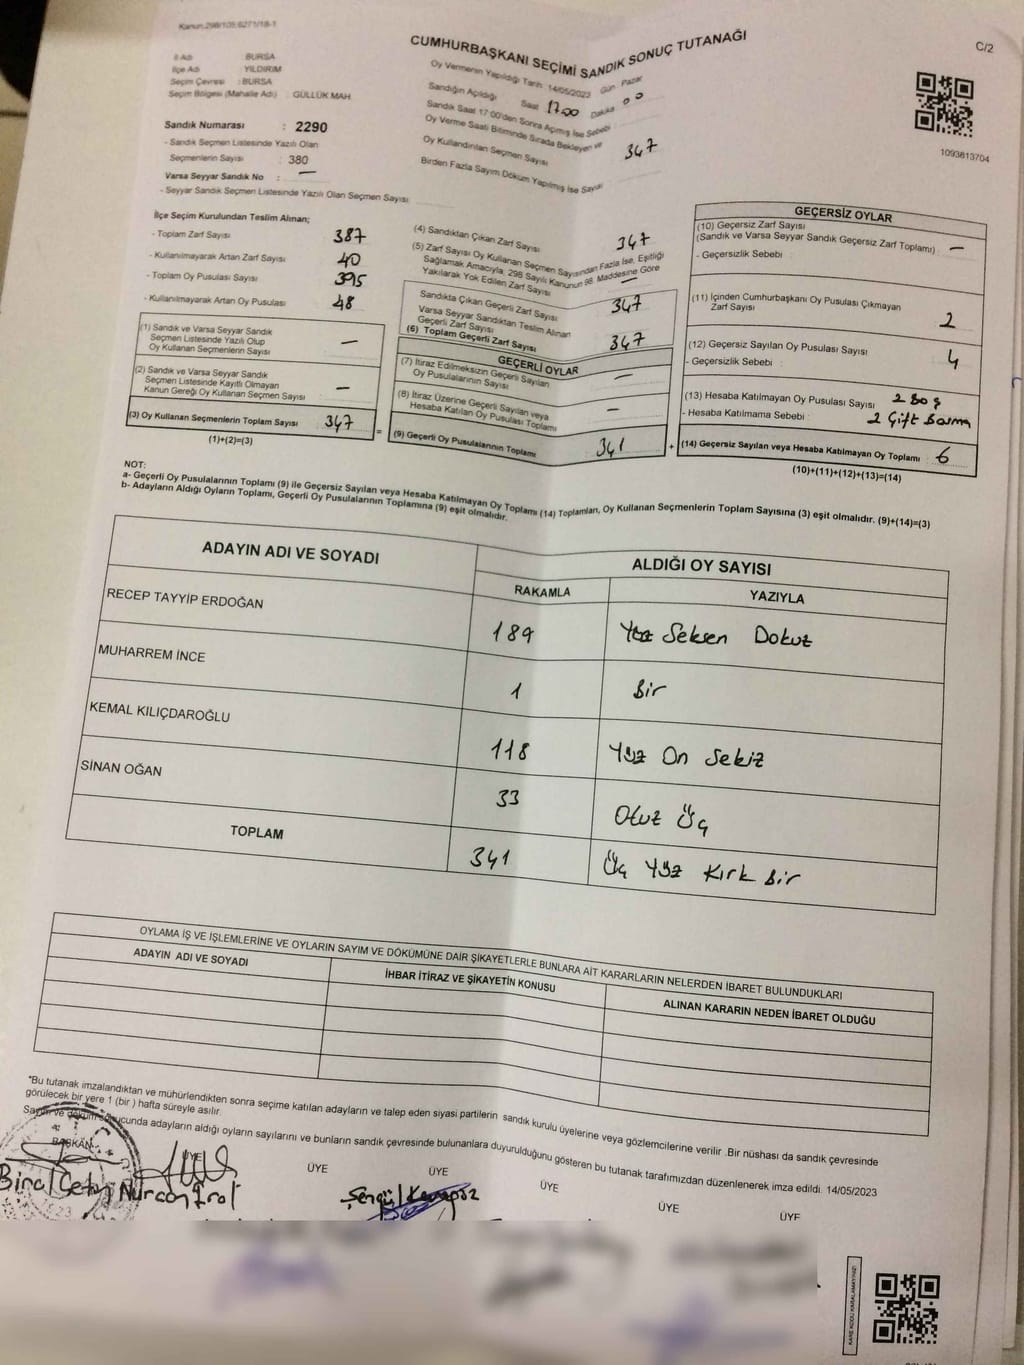 Kanun:298/105;6271/18-1
CUMHURBAŞKANI SEÇİMİ SANDIK SONUÇ TUTANAĞI
C/2
İl Adı : BURSA
İlçe Adı : YILDIRIM
Seçim Çevresi : BURSA
Seçim Bölgesi (Mahalle Adı) : GÜLLÜK MAH.
Sandık Numarası : 2290
- Sandık Seçmen Listesinde Yazılı Olan
Seçmenlerin Sayısı : 380
Varsa Seyyar Sandık No : —
- Seyyar Sandık Seçmen Listesinde Yazılı Olan Seçmen Sayısı
Oy Vermenin Yapıldığı Tarih 14/05/2023 Gün Pazar
Sandığın Açıldığı Saat 17.00 Dakika 00
Sandık Saat 17:00'den Sonra Açılmış İse Sebebi
Oy Verme Saati Bitiminde Sırada Bekleyen ve
Oy Kullandırılan Seçmen Sayısı 347
Birden Fazla Sayım Döküm Yapılmış İse Sayısı
1093813704
İlçe Seçim Kurulundan Teslim Alınan;
- Toplam Zarf Sayısı 387
- Kullanılmayarak Artan Zarf Sayısı 40
- Toplam Oy Pusulası Sayısı 395
- Kullanılmayarak Artan Oy Pusulası 48
(1) Sandık ve Varsa Seyyar Sandık
Seçmen Listesinde Yazılı Olup
Oy Kullanan Seçmenlerin Sayısı —
(2) Sandık ve Varsa Seyyar Sandık
Seçmen Listesinde Kayıtlı Olmayan
Kanun Gereği Oy Kullanan Seçmen Sayısı —
(3) Oy Kullanan Seçmenlerin Toplam Sayısı 347
(1)+(2)=(3)
=
(4) Sandıktan Çıkan Zarf Sayısı 347
(5) Zarf Sayısı Oy Kullanan Seçmen Sayısından Fazla İse, Eşitliği
Sağlamak Amacıyla, 298 Sayılı Kanunun 98. Maddesine Göre
Yakılarak Yok Edilen Zarf Sayısı —
Sandıkta Çıkan Geçerli Zarf Sayısı 347
Varsa Seyyar Sandıktan Teslim Alınan
Geçerli Zarf Sayısı
(6) Toplam Geçerli Zarf Sayısı 347
GEÇERLİ OYLAR
(7) İtiraz Edilmeksizin Geçerli Sayılan
Oy Pusulalarının Sayısı —
(8) İtiraz Üzerine Geçerli Sayılan veya
Hesaba Katılan Oy Pusulası Toplamı —
(9) Geçerli Oy Pusulalarının Toplamı 341
+
GEÇERSİZ OYLAR
(10) Geçersiz Zarf Sayısı
(Sandık ve Varsa Seyyar Sandık Geçersiz Zarf Toplamı) —
- Geçersizlik Sebebi :
(11) İçinden Cumhurbaşkanı Oy Pusulası Çıkmayan
Zarf Sayısı 2
(12) Geçersiz Sayılan Oy Pusulası Sayısı 4
- Geçersizlik Sebebi :
(13) Hesaba Katılmayan Oy Pusulası Sayısı 2 Boş
- Hesaba Katılmama Sebebi : 2 Çift Basma
(14) Geçersiz Sayılan veya Hesaba Katılmayan Oy Toplamı : 6
(10)+(11)+(12)+(13)=(14)
NOT:
a- Geçerli Oy Pusulalarının Toplamı (9) ile Geçersiz Sayılan veya Hesaba Katılmayan Oy Toplamı (14) Toplamları, Oy Kullanan Seçmenlerin Toplam Sayısına (3) eşit olmalıdır. (9)+(14)=(3)
b- Adayların Aldığı Oyların Toplamı, Geçerli Oy Pusulalarının Toplamına (9) eşit olmalıdır.
ADAYIN ADI VE SOYADI
ALDIĞI OY SAYISI
RAKAMLA YAZIYLA
RECEP TAYYİP ERDOĞAN 189 Yüz Seksen Dokuz
MUHARREM İNCE 1 Bir
KEMAL KILIÇDAROĞLU 118 Yüz On Sekiz
SİNAN OĞAN 33 Otuz Üç
TOPLAM 341 Üç Yüz Kırk Bir
OYLAMA İŞ VE İŞLEMLERİNE VE OYLARIN SAYIM VE DÖKÜMÜNE DAİR ŞİKAYETLERLE BUNLARA AİT KARARLARIN NELERDEN İBARET BULUNDUKLARI
ADAYIN ADI VE SOYADI İHBAR İTİRAZ VE ŞİKAYETİN KONUSU ALINAN KARARIN NEDEN İBARET OLDUĞU
*Bu tutanak imzalandıktan ve mühürlendikten sonra seçime katılan adayların ve talep eden siyasi partilerin sandık kurulu üyelerine veya gözlemcilerine verilir .Bir nüshası da sandık çevresinde
görülecek bir yere 1 (bir ) hafta süreyle asılır.
Sayım ve döküm sonucunda adayların aldığı oyların sayılarını ve bunların sandık çevresinde bulunanlara duyurulduğunu gösteren bu tutanak tarafımızdan düzenlenerek imza edildi. 14/05/2023
BAŞKAN ÜYE ÜYE ÜYE ÜYE ÜYE ÜYE
Birol Çetin Nurcan Erol Şengül